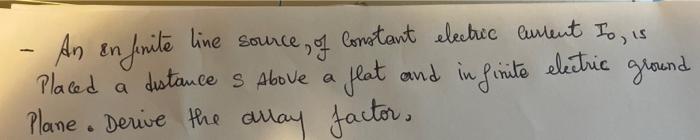 - An infinite line source, of Constant electric current I₀, is
Placed a distance s Above a flat and infinite electric ground
Plane. Derive the array factor.